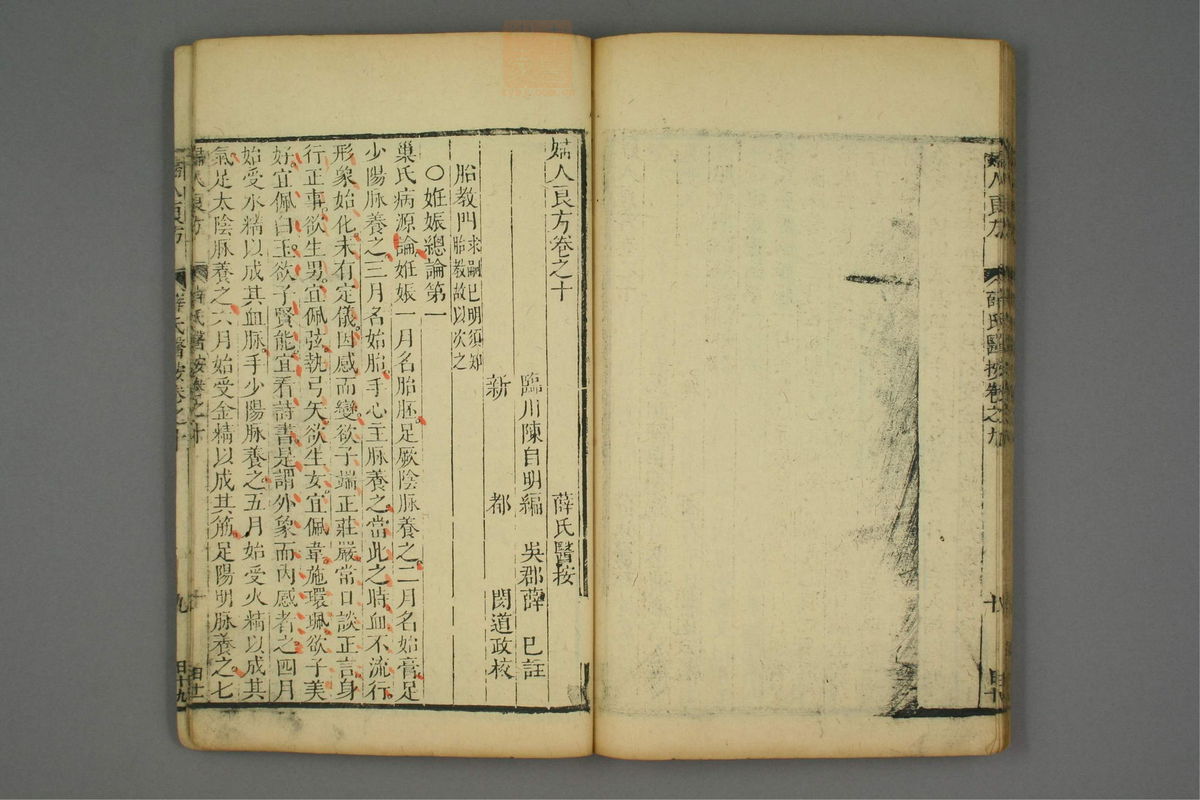 婦人良方卷之十 薛氏醫按
臨川陳自明編 吳郡薛 已註
新 都 閔道政校
胎教門 求嗣已明須知
胎教故以次之
〇姙娠總論第一
巢氏病源論姙娠一月名胎胚足厥陰脉養之二月名始膏足
少陽脉養之三月名始胎手心主脉養之當此之時血不流行
形象始化未有定儀因感而變欲子端正莊嚴常口談正言身
行正事欲生男宜佩弦執弓矢欲生女宜佩韋施環珮欲子美
好宜佩白玉欲子賢能宜看詩書是謂外象而內感者之四月
始受水精以成其血脉手少陽脉養之五月始受火精以成其
氣足太陰脉養之六月始受金精以成其筋足陽明脉養之七